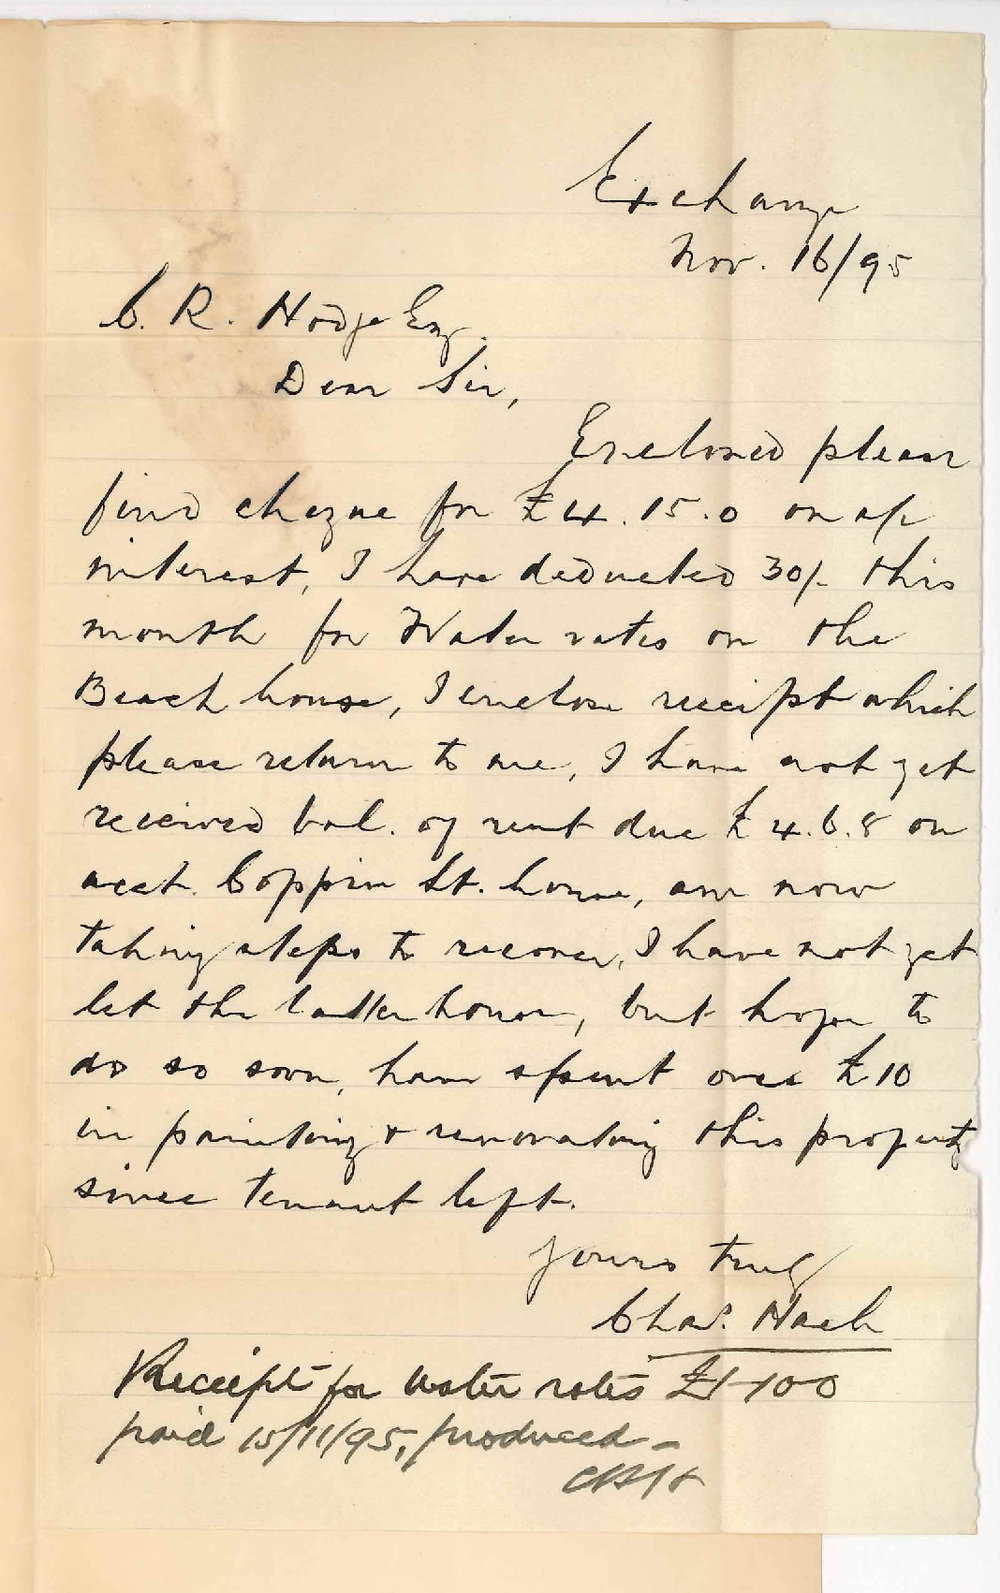 Exchange
Nov. 16/95
C. R. Hodge Esq.
Dear Sir,
Enclosed please
find cheque for £4.15.0 on a/c
interest, I have deducted 30/- this
month for Water rates on the
Beach house, I enclose receipt which
please return to me, I have not yet
received bal. of rent due £4.6.8 on
acct. Coppin St. house, am now
taking steps to recover, I have not yet
let the latter house, but hope to
do so soon, have spent over £10
in painting & renovating this property
since tenant left.
Yours truly
Chas. Hack
Receipt for water rates £1-10-0
paid 15/11/95, produced -